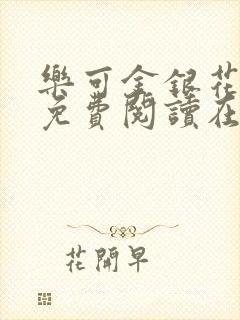 樂可金銀花
免費閱讀在
花開早